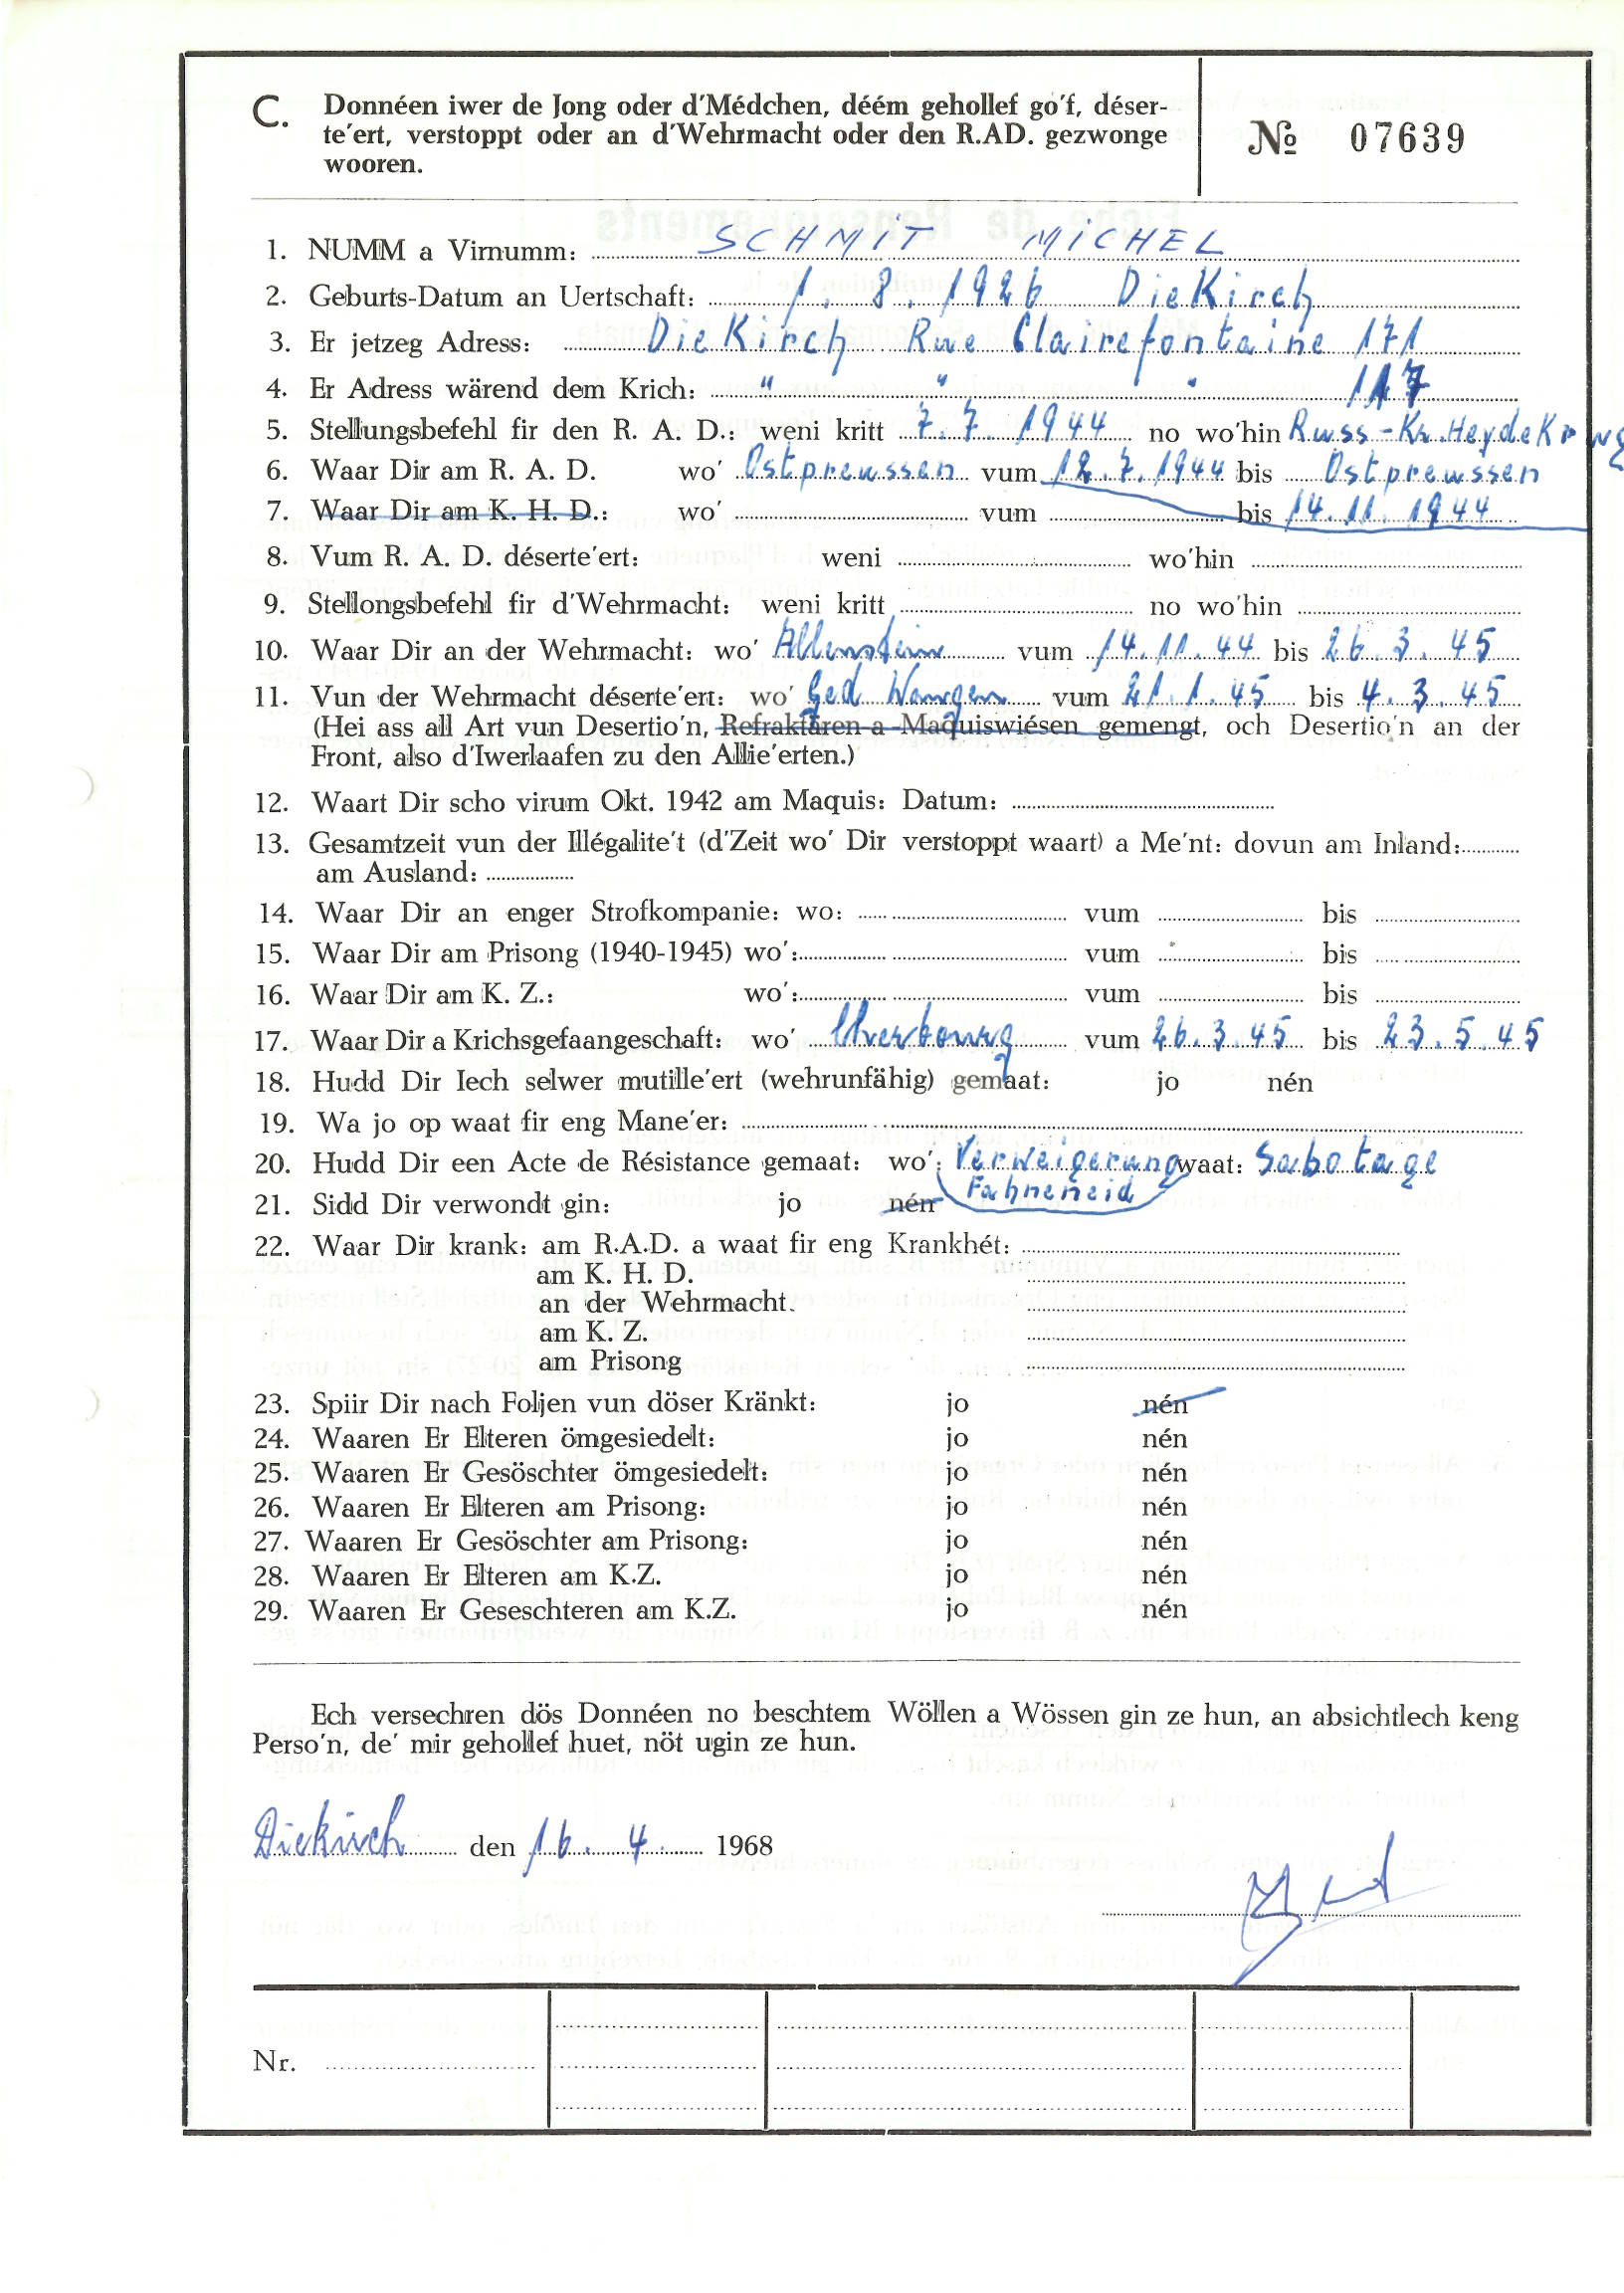 C. Donnéen iwer de Jong oder d'Médchen, déém gehollef go'f, déser-
te'ert, verstoppt oder an d'Wehrmacht oder den R.AD. gezwonge
wooren.
№ 07639
1. NUMM a Virnumm: SCHMIT MICHEL
2. Geburts-Datum an Uertschaft: 1. 8. 1926 Diekirch
3. Er jetzeg Adress: Diekirch Rue Clairefontaine 171
4. Er Adress wärend dem Krich: " " "
5. Stellungsbefehl fir den R. A. D.: weni kritt 7.7.1944 no wo'hin Russ-Kr.Heydekrug
6. Waar Dir am R. A. D. wo' Ostpreussen vum 12.7.1944 bis Ostpreussen
7. Waar Dir am K. H. D.: wo' vum bis 14.11.1944
8. Vum R. A. D. déserte'ert: weni wo'hin
9. Stellongsbefehl fir d'Wehrmacht: weni kritt no wo'hin
10. Waar Dir an der Wehrmacht: wo' Allenstein vum 14.11.44 bis 26.3.45
11. Vun der Wehrmacht déserte'ert: wo' vum 21.1.45 bis 4.3.45
(Hei ass all Art vun Desertio'n, Refraktären a Maquiswiésen gemengt, och Desertio'n an der
Front, also d'Iwerlaafen zu den Allie'erten.)
12. Waart Dir scho virum Okt. 1942 am Maquis: Datum:
13. Gesamtzeit vun der Illégalite't (d'Zeit wo' Dir verstoppt waart) a Me'nt: dovun am Inland:
am Ausland:
14. Waar Dir an enger Strofkompanie: wo: vum bis
15. Waar Dir am Prisong (1940-1945) wo': vum bis
16. Waar Dir am K. Z.: wo': vum bis
17. Waar Dir a Krichsgefaangeschaft: wo' vum 26.3.45 bis 23.5.45
18. Hudd Dir Iech selwer mutille'ert (wehrunfähig) gemaat: jo nén
19. Wa jo op waat fir eng Mane'er:
20. Hudd Dir een Acte de Résistance gemaat: wo': Verweigerung waat: Sabotage
Fahneneid
21. Sidd Dir verwondt gin: jo nén
22. Waar Dir krank: am R.A.D. a waat fir eng Krankhét:
am K. H. D.
an der Wehrmacht.
am K. Z.
am Prisong
23. Spiir Dir nach Foljen vun döser Kränkt: jo nén
24. Waaren Er Elteren ömgesiedelt: jo nén
25. Waaren Er Gesöschter ömgesiedelt: jo nén
26. Waaren Er Elteren am Prisong: jo nén
27. Waaren Er Gesöschter am Prisong: jo nén
28. Waaren Er Elteren am K.Z. jo nén
29. Waaren Er Geseschteren am K.Z. jo nén
Ech versechren dös Donnéen no beschtem Wöllen a Wössen gin ze hun, an absichtlech keng
Perso'n, de' mir gehollef huet, nöt ugin ze hun.
Diekirch den 16. 4. 1968
Nr.